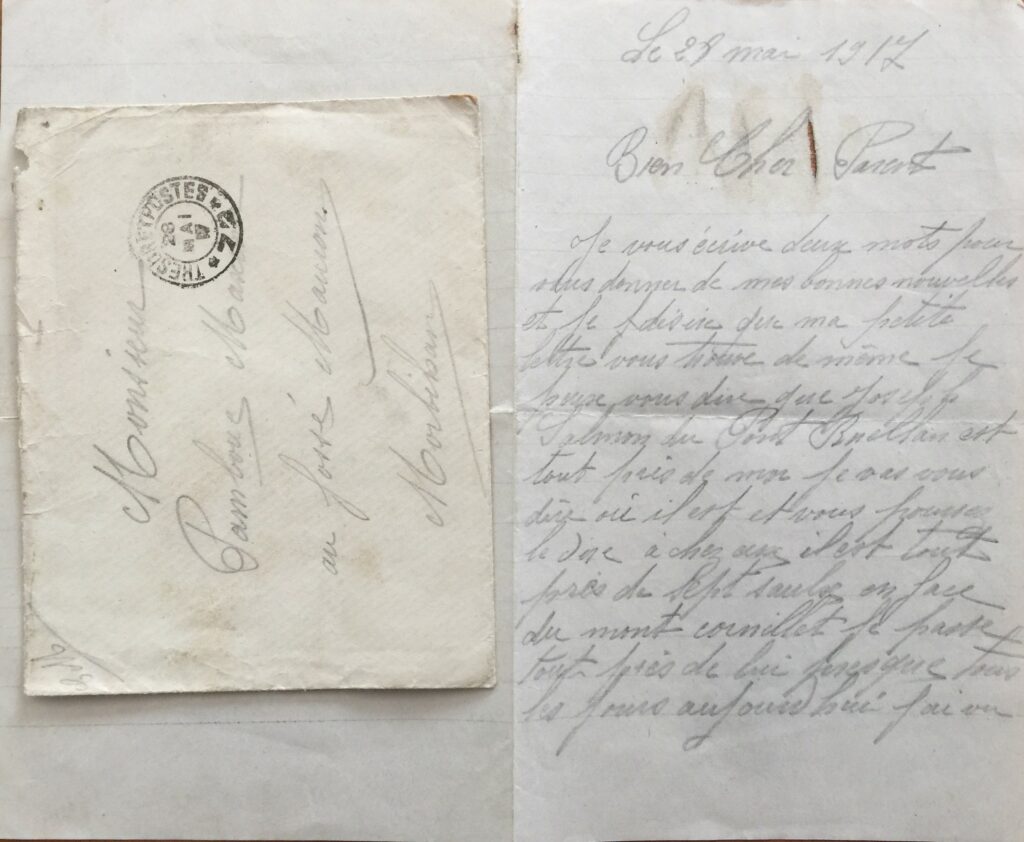 TRESOR ET POSTES
28
MAI
17
* 74 *
Monsieur
au fossé Mauron
Morbihan
Le 28 mai 1917
Bien Cher Parent
Je vous écrive deux mots pour
vous donner de mes bonnes nouvelles
et je désire que ma petite
lettre vous trouve de même Je
peux vous dire que Joseph
Salmon du Pont Ruellan est
tout près de moi je vas vous
dire où il est et vous pouvez
le dire à chez eux il est tout
près de Sept Saulx en face
du mont cornillet je passe
tout près de lui presque tous
les jours aujourd'hui j'ai vu